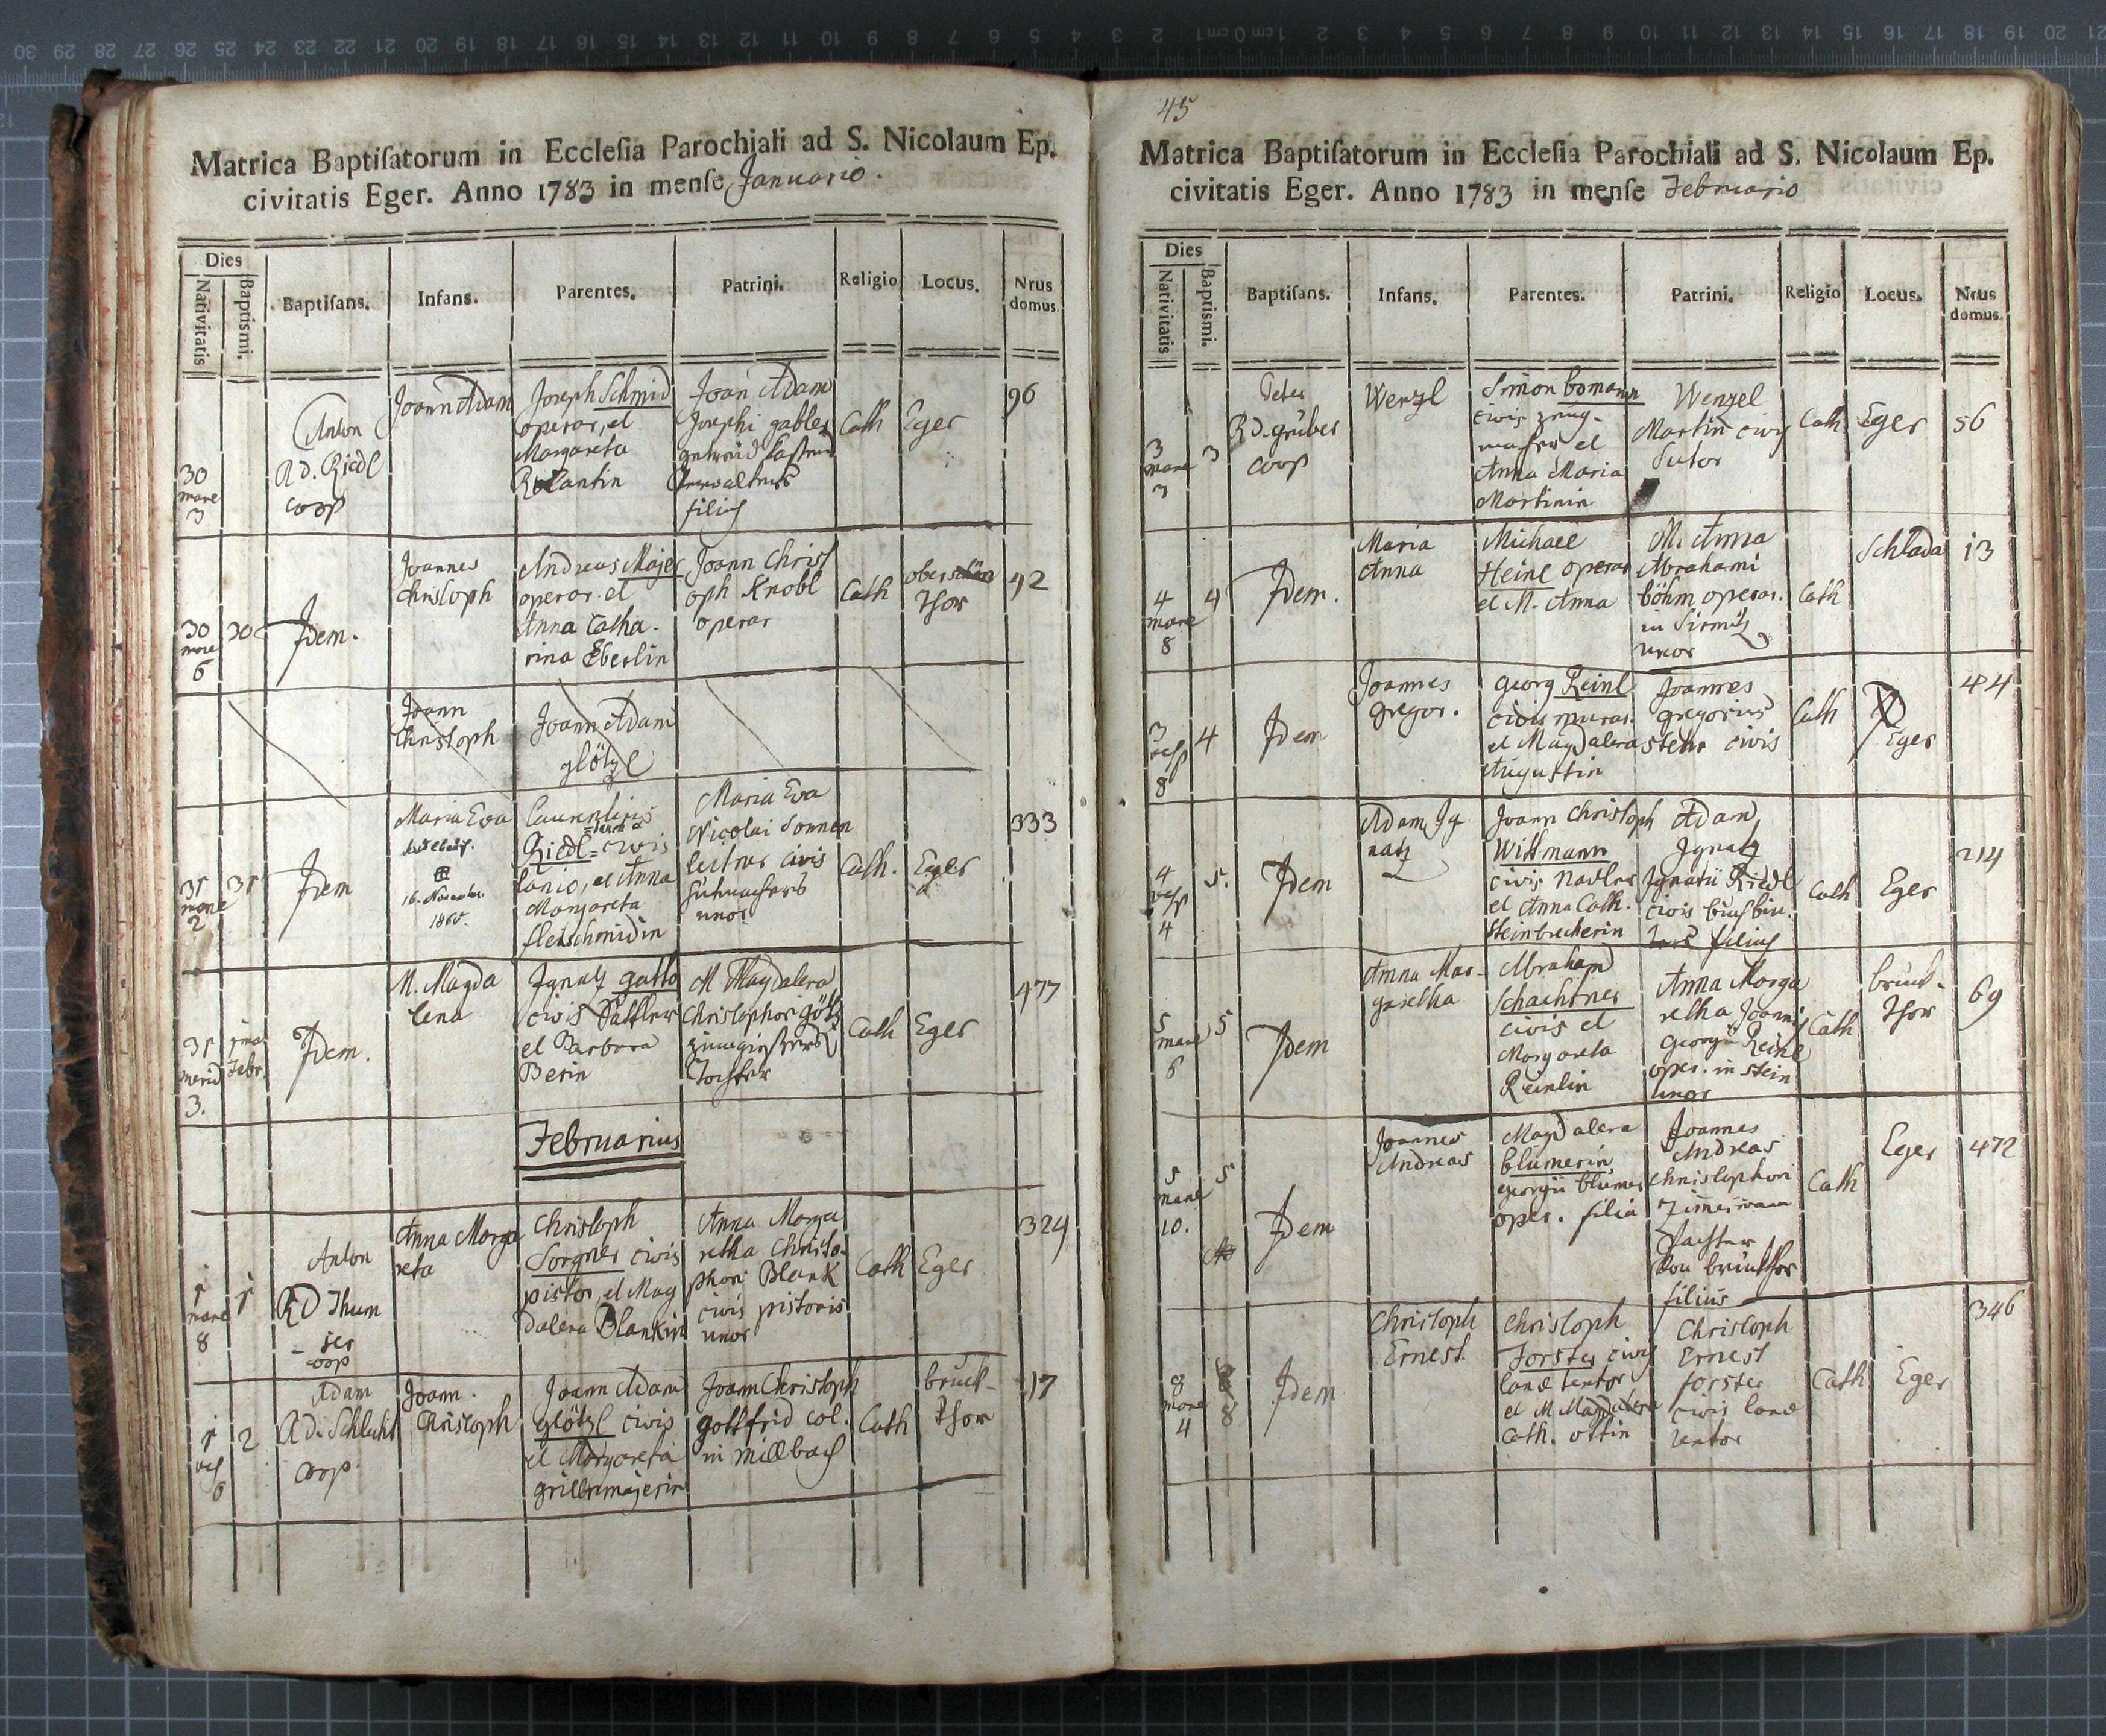 Matrica Baptisatorum in Ecclesia Parochiali ad S. Nicolaum Ep.
civitatis Eger. Anno 1783 in mense Januario.
Dies
Nativitatis
Baptismi.
Baptisans.
Infans.
Parentes.
Patrini.
Religio
Locus.
Nrus
domus.
30
mane
3
Anton
R d. Riedl
coop
Joann Adam
Joseph Schmid
operar, et
Margareta
Joan Adam
Josephi gabler
filius
Cath
Eger
96
30
mane
6
30
Idem.
Joannes
Christoph
Andreas Majer
operar. et
Anna Catha-
rina Eberlin
Joann Christ
oph Knobl
operar
Cath
ober
Thor
42
Joann
Christoph
Joann Adam
glötzl
31
mane
2
31
Idem
Maria Eva
16. November
Riedl civis
lanio, et Anna
Margareta
fleischmidin
Maria Eva
Nicolai Sonnen
leitner civis
uxor
Cath.
Eger
333
31
merid
3.
Febr.
Idem.
M. Magda
lena
Ignatz
civis Sattler
et Barbara
Berin
M Magdalena
Christophori götz
Tochter
Cath
Eger
477
Februarius
1
mane
8
1
Anton
RD Thum
ser
coop
Anna Marga
reta
Christoph
Sorgner civis
pistor, et Mag
dalena Blankin
Anna Marga
retha Christo-
phori Blank
civis pistoris
uxor
Cath
Eger
324
1
vesp
6
2
Adam
R d. Schlecht
coop.
Joann.
Christoph
Joann Adam
glötzl civis
et Margareta
grillnmajerin
Joann Christoph
gottfrid col.
in Millbach
Cath
bruck-
Thor
17
45
Matrica Baptisatorum in Ecclesia Parochiali ad S. Nicolaum Ep.
civitatis Eger. Anno 1783 in mense Februario
Dies
Nativitatis
Baptismi.
Baptisans.
Infans.
Parentes.
Patrini.
Religio
Locus.
Nrus
domus.
3
mane
3
3
Peter
R d. grüber
coop
Wenzl
Simon bomann
civis zeug-
macher et
Anna Maria
Martinin
Wenzel
Martin civis
Sutor
Cath
Eger
56
4
mane
8
4
Idem.
Maria
Anna
Michael
Heinl operar
et M. Anna
M. Anna
Abrahami
böhm operar.
in Sirmitz
uxor
Cath
Schlada
13
3
vesp
8
4
Idem
Joannes
gregor.
georg Reinl
civis murar.
et Magdalena
Augustin
Joannes
gregorius
stehr civis
Cath
Eger
44
4
vesp
4
5.
Idem
Adam Ig
natz
Joann Christoph
Wittmann
civis Nadler
et Anna Cath.
Steinbecherin
Adam
Ignatz
Ignatii Riedl
civis buchbin-
ders filius
Cath
Eger
214
5
mane
6
5
Idem
Anna Mar-
garetha
Abraham
Schachtner
civis et
Margareta
Reinlin
Anna Marga
retha Joannis
Georgii Reinl
oper. in stein
uxor
Cath
bruck-
Thor
69
5
mane
10.
5
Idem
Joannes
Andreas
Magdalena
blumerin
georgii blumer
oper. filia
Joannes
Andreas
Christophori
filius
Cath
Eger
472
8
mane
4
8
Idem
Christoph
Ernest
Christoph
Forster civis
land tentor
et M Magdalena
Cath. ottin
Christoph
Ernest
forster
civis land
tentor
Cath
Eger
346